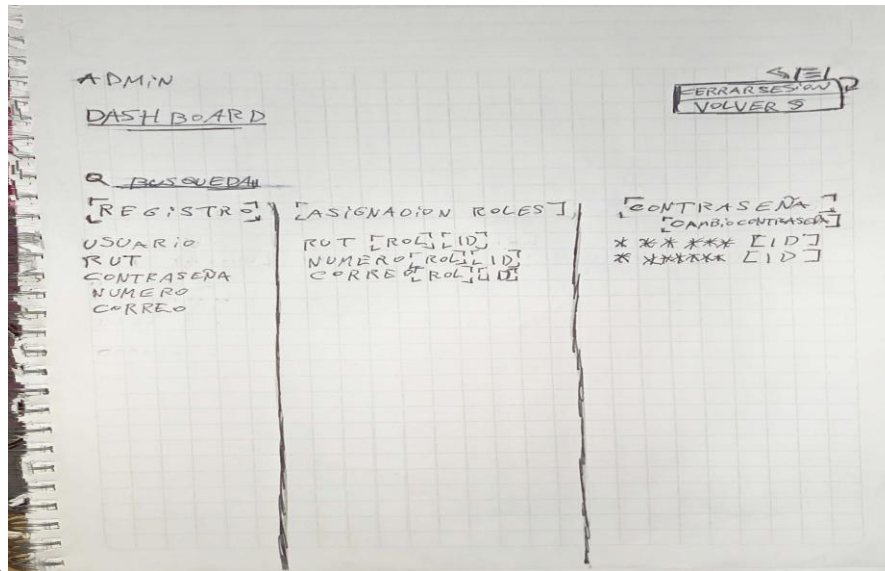 ADMIN
CERRAR SESION
VOLVER
DASHBOARD
BUSQUEDA
[REGISTRO]
USUARIO
RUT
CONTRASEÑA
NUMERO
CORREO
[ASIGNADION ROLES]
RUT [ROL] [ID]
NUMERO [ROL] [ID]
CORREO [ROL] [ID]
[CONTRASEÑA]
[CAMBIO CONTRASEÑA]
* ** *** [ID]
* ****** [ID]